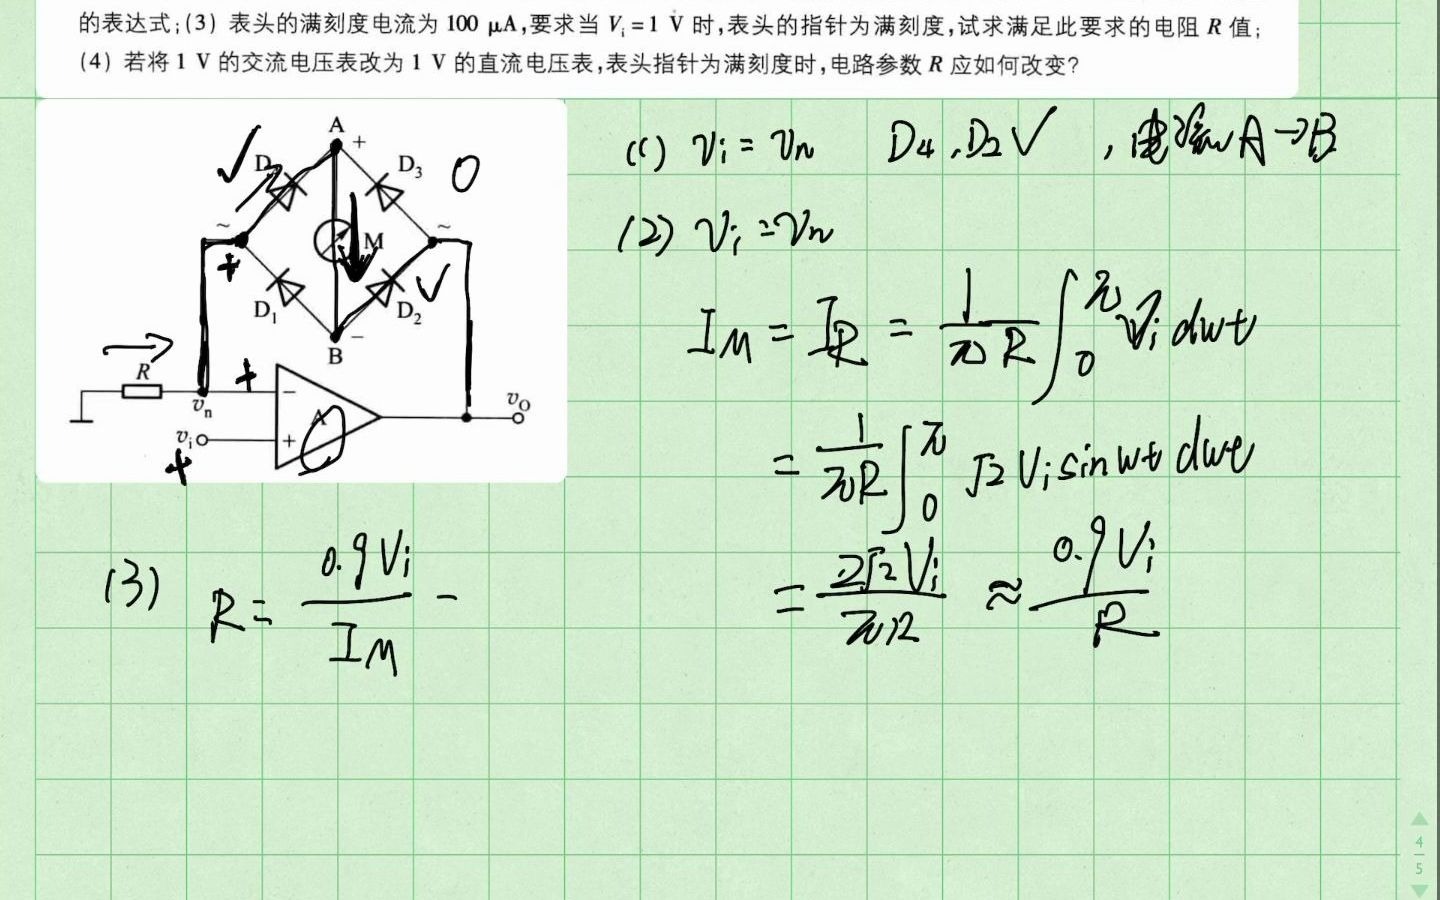 的表达式;(3) 表头的满刻度电流为 100 μA,要求当 Vi=1 V 时,表头的指针为满刻度,试求满足此要求的电阻 R 值;
(4) 若将 1 V 的交流电压表改为 1 V 的直流电压表,表头指针为满刻度时,电路参数 R 应如何改变?
A
+
D
D3
0
~
~
M
+
D1
D2
−
B
R
+
−
vn
A
vO
vi
+
+
(1) vi = vn D4, D2 ✓ , 电流 A→B
(2) vi = vn
IM = IR = 1/πR ∫0^π Vi dwt
= 1/πR ∫0^π √2 Vi sin wt dwt
= 2√2 Vi/πR ≈ 0.9 Vi/R
(3) R = 0.9 Vi/IM −
4
5